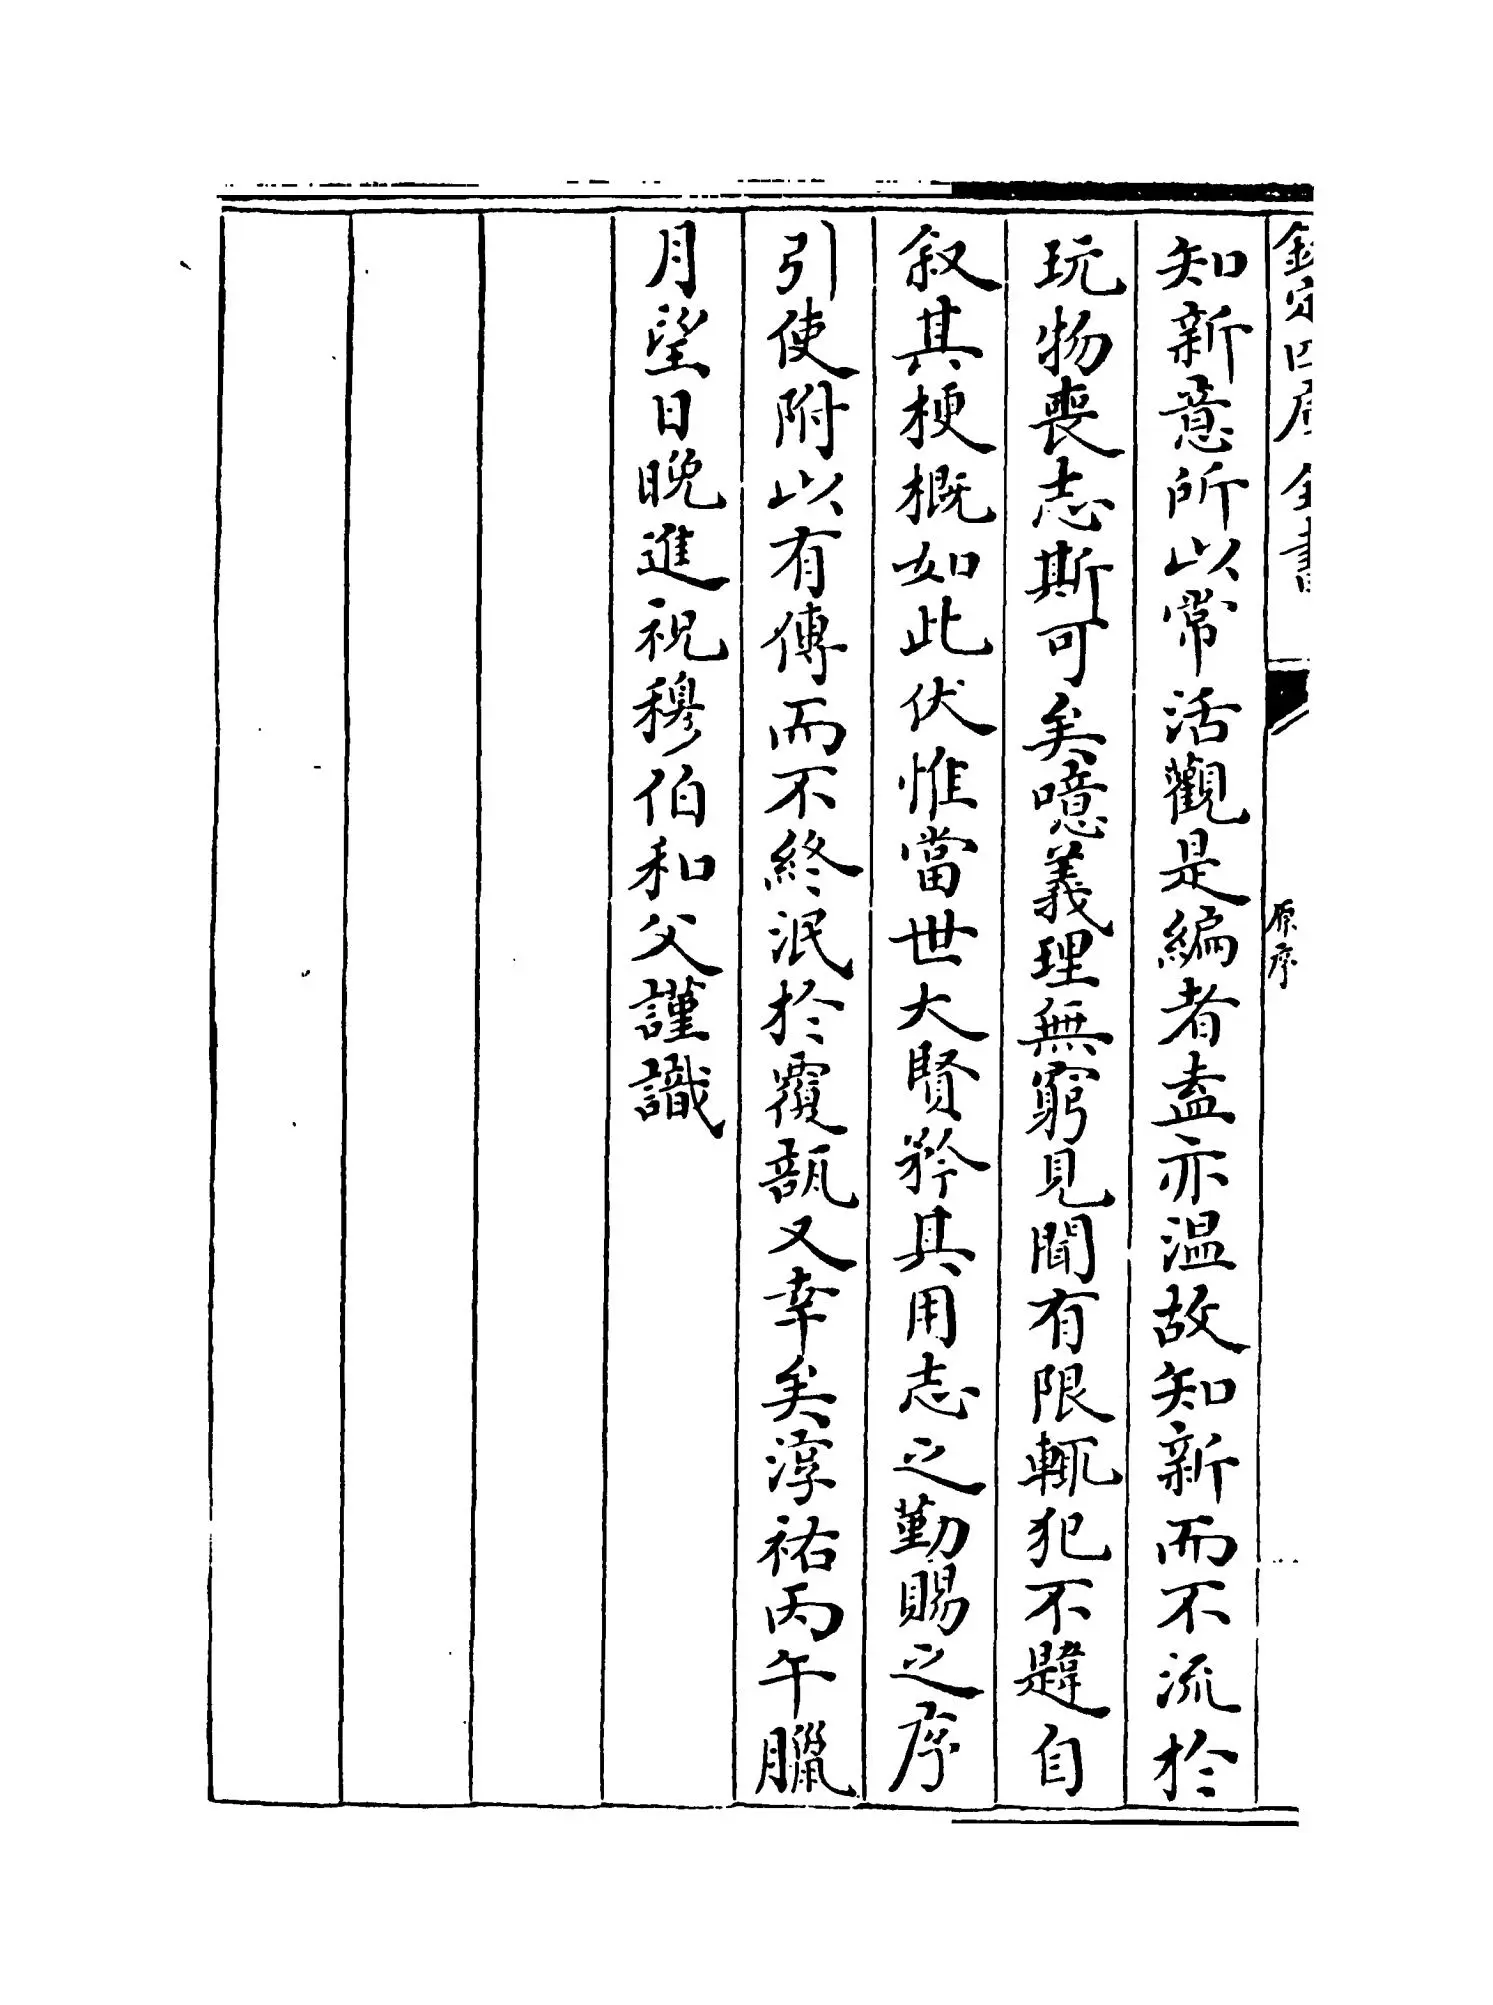 欽定四庫全書
原序
知新意所以常活觀是編者盍亦温故知新而不流於
玩物喪志斯可矣噫義理無窮見聞有限輒犯不韙自
叙其梗概如此伏惟當世大賢矜其用志之勤賜之序
引使附以有傳而不終泯於覆瓿又幸矣淳祐丙午臘
月望日晚進祝穆伯和父謹識